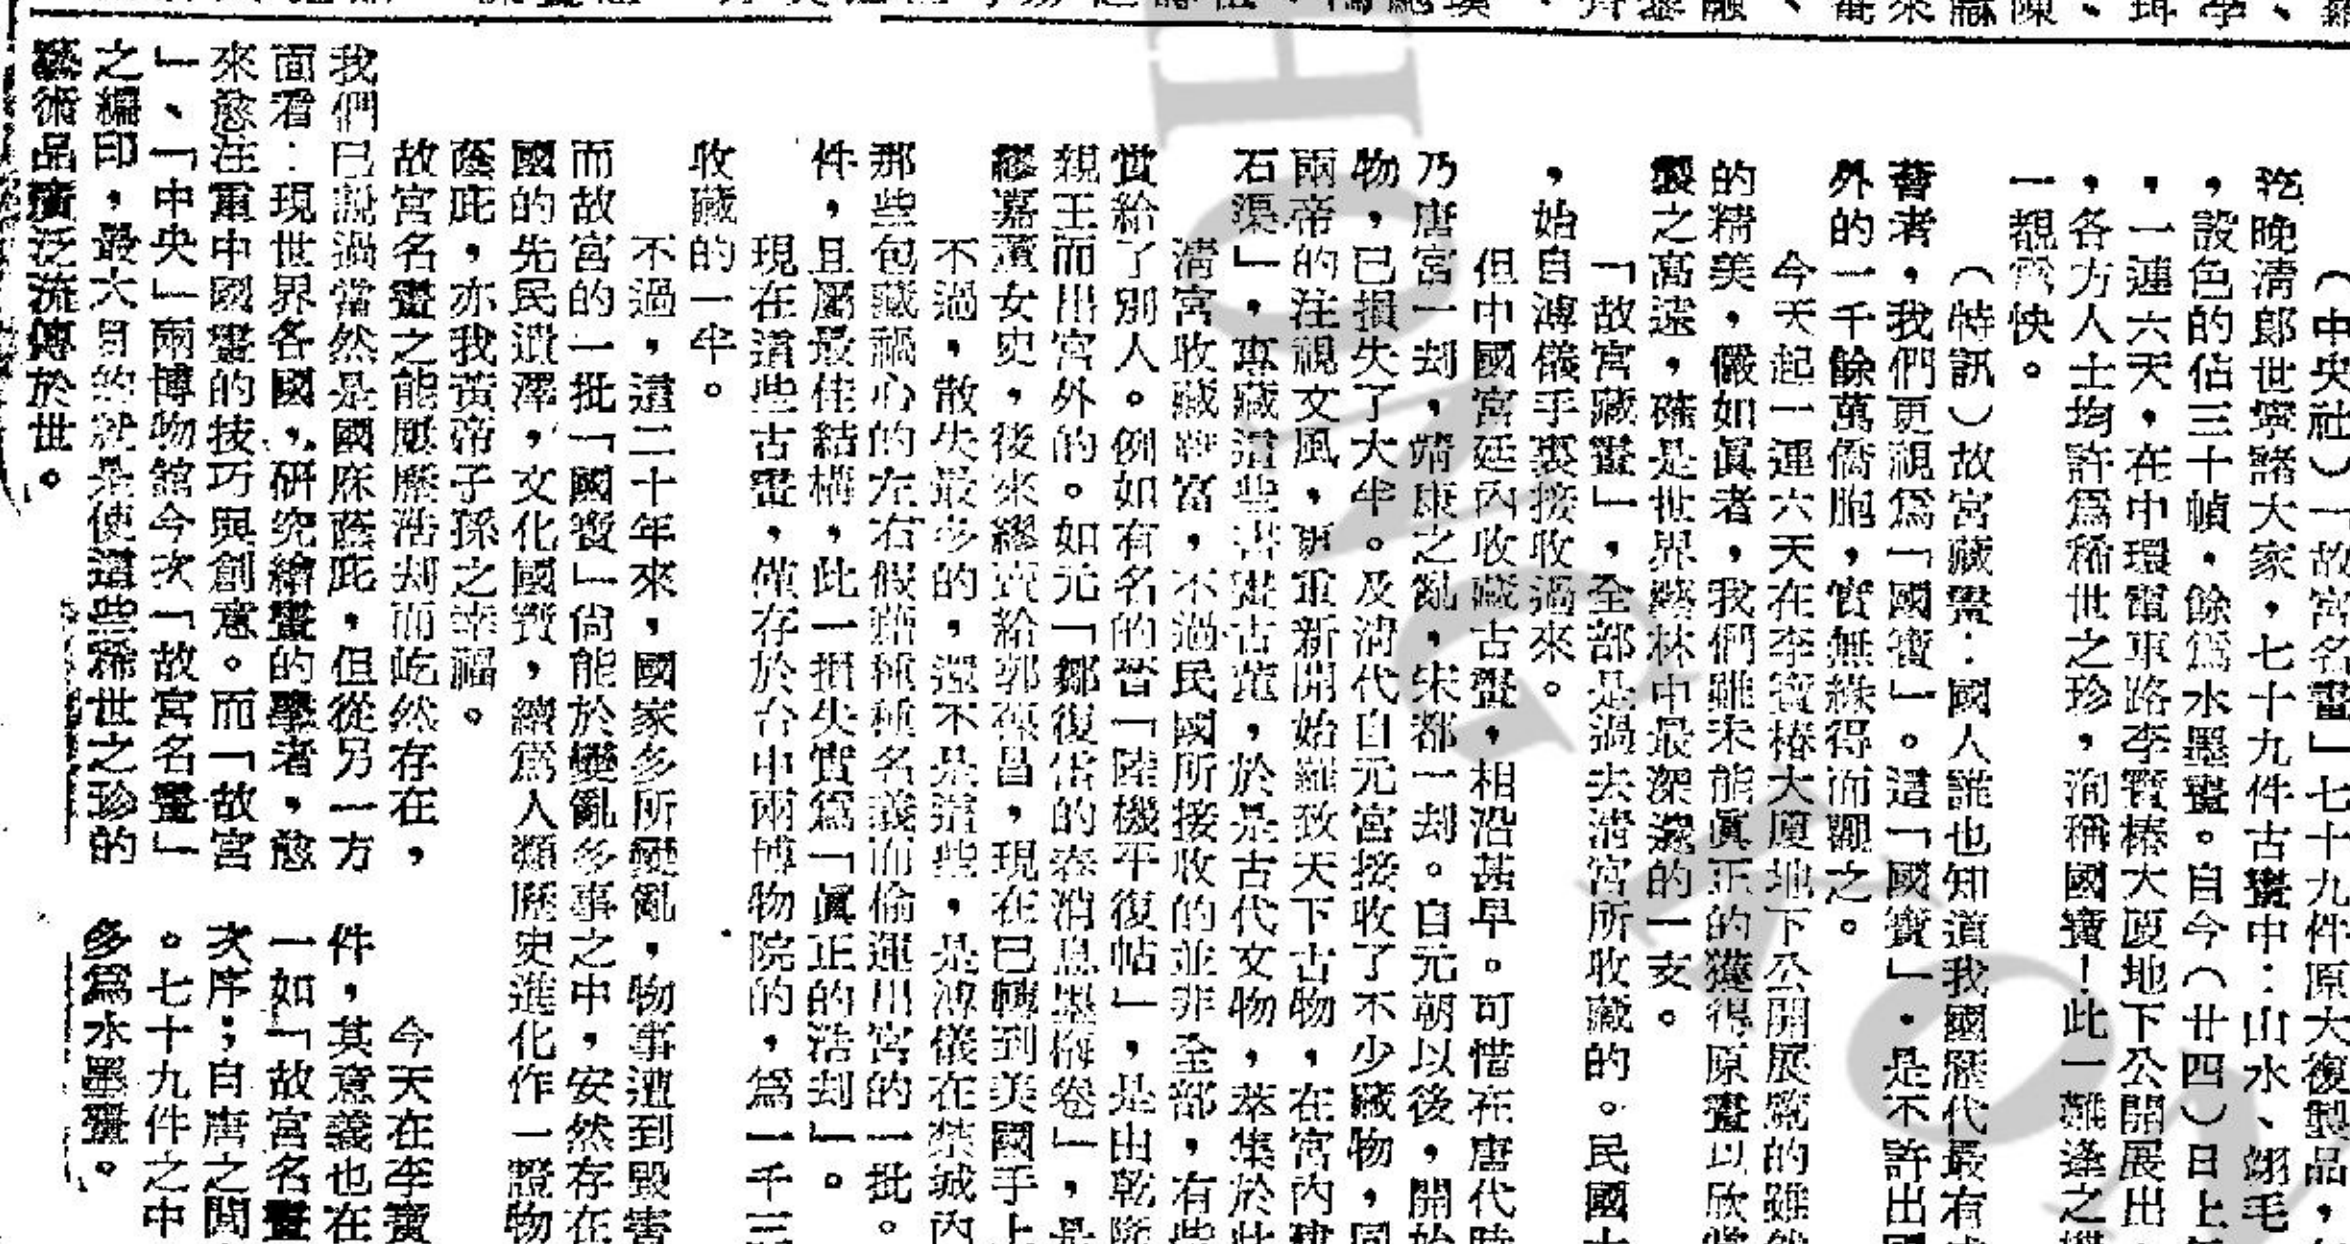 （中央社）「故宮名畫」七十九件原大複製品，
迄晚淸郎世寧諸大家，七十九件古畫中：山水、翊毛
，設色的佔三十幀，餘爲水墨畫。自今（廿四）日上
，一連六天，在中環電車路李寶椿大厦地下公開展出
，各方人士均許爲稀世之珍，洵稱國寶！此一難逢之
一覩爲快。
（特訊）故宮藏畫：國人誰也知道我國歷代最有
著者，我們更視爲「國寶」。這「國寶」，是不許出國
外的一千餘萬僑胞，實無緣得而覩之。
今天起一連六天在李寶椿大厦地下公開展覽的雖然
的精美，儼如眞者，我們雖未能眞正的獲得原畫以欣賞
製之高遠，確是世界藝林中最深遠的一支。
「故宮藏畫」，全部是過去淸宮所收藏的。民國
，始自溥儀手裏接收過來。
但中國宮廷內收藏古畫，相沿甚早。可惜在唐代時
乃唐宮一刦，靖康之亂，宋都一刦。自元朝以後，開始
物，已損失了大半。及淸代自元宮接收了不少藏物，同
兩帝的注視文風，更重新開始羅致天下古物，在宮內建
石渠」，專藏這些書畫古蹟，於是古代文物，萃集於此
淸宮收藏雖富，不過民國所接收的並非全部，有些
賞給了別人。例如有名的晉「陸機平復帖」，是由乾隆
親王而出宮外的。如元「鄒復雷的春消息墨梅卷」，是
繆嘉蕙女史，後來繆賣給郭葆昌，現在已轉到美國手上
不過，散失最多的，還不是這些，是溥儀在禁城內
那些包藏禍心的左右假藉種種名義而偷運出宮的一批。
件，且屬最佳結構，此一損失實爲「眞正的浩刦」。
現在這些古畫，僅存於台中兩博物院的，爲一千三
收藏的一半。
不過，這二十年來，國家多所變亂，物事遭到毀害
而故宮的一批「國寶」尙能於變亂多事之中，安然存在
國的先民遺澤，文化國寶，續爲人類歷史進化作一證物
蔭庇，亦我黃帝子孫之幸福。
故宮名畫之能歷歷浩刦而屹然存在，
我們已說過當然是國庥蔭庇，但從另一方
面看：現世界各國，研究繪畫的學者，愈
來愈注重中國畫的技巧與創意。而「故宮
」、「中央」兩博物館今次「故宮名畫」
之編印，最大目的就是使這些稀世之珍的
藝術品廣泛流傳於世。
今天在李寶
件，其意義也在
一如「故宮名畫
次序；自唐之閻
。七十九件之中
多爲水墨畫。